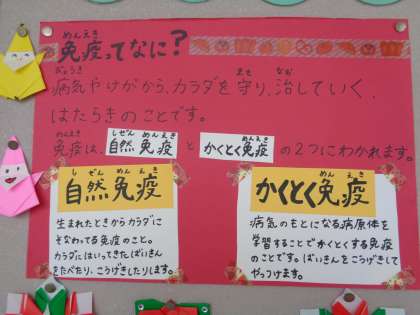 免疫ってなに?
病気やけがから、カラダを守り、治していく、
はたらきのことです。
免疫は、自然免疫とかくとく免疫の2つにわかれます。
自然免疫
生まれたときからカラダに
そなわってる免疫のこと。
カラダにはいってきたばいきん
をたべたり、こうげきしたりします。
かくとく免疫
病気のもとになる病原体を
学習することでかくとくする免疫
のことです。ばいきんをこうげきして
やっつけます。